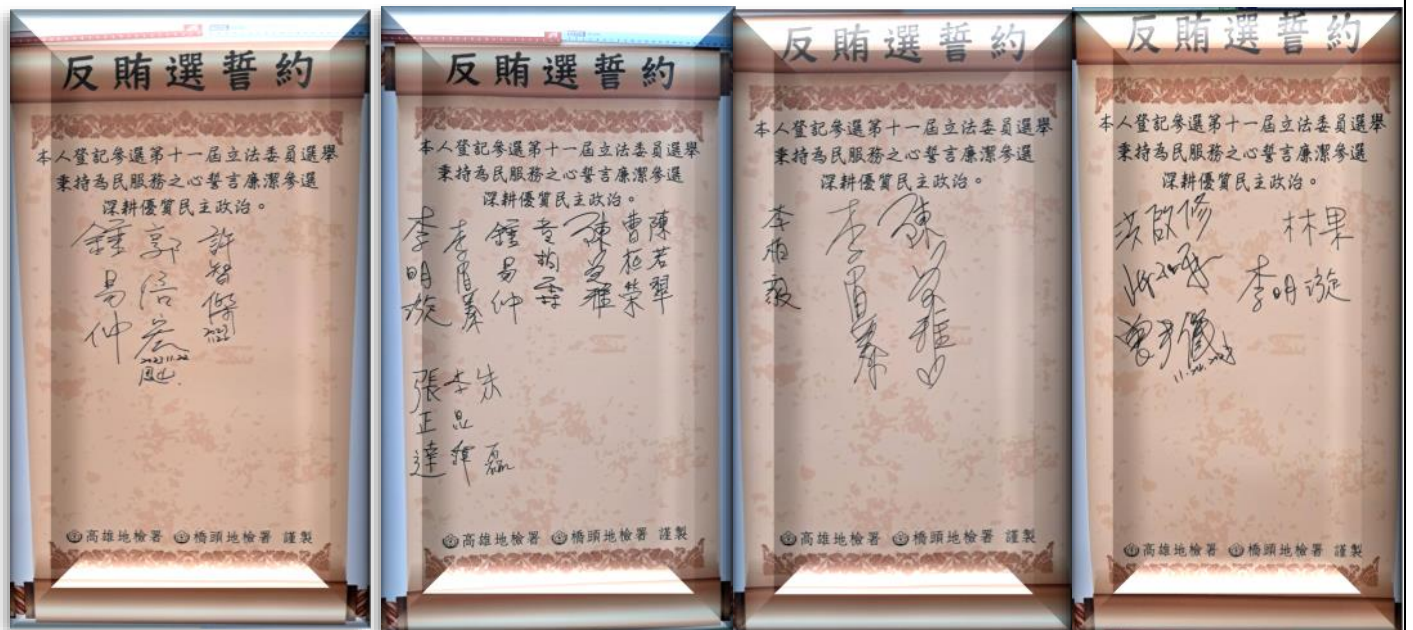 反賄選誓約
本人登記參選第十一屆立法委員選舉
秉持為民服務之心誓言廉潔參選
深耕優質民主政治。
許智傑
2023
11.22
郭倍宏
2023.11.22
鳳山
鍾易仲
高雄地檢署 橋頭地檢署 謹製
反賄選誓約
本人登記參選第十一屆立法委員選舉
秉持為民服務之心誓言廉潔參選
深耕優質民主政治。
陳若翠
曹桓榮
鍾易仲
李明璇
朱 磊
李昆澤
張正達
高雄地檢署 橋頭地檢署 謹製
反賄選誓約
本人登記參選第十一屆立法委員選舉
秉持為民服務之心誓言廉潔參選
深耕優質民主政治。
高雄地檢署 橋頭地檢署 謹製
反賄選誓約
本人登記參選第十一屆立法委員選舉
秉持為民服務之心誓言廉潔參選
深耕優質民主政治。
林果
李明璇
高雄地檢署 橋頭地檢署 謹製